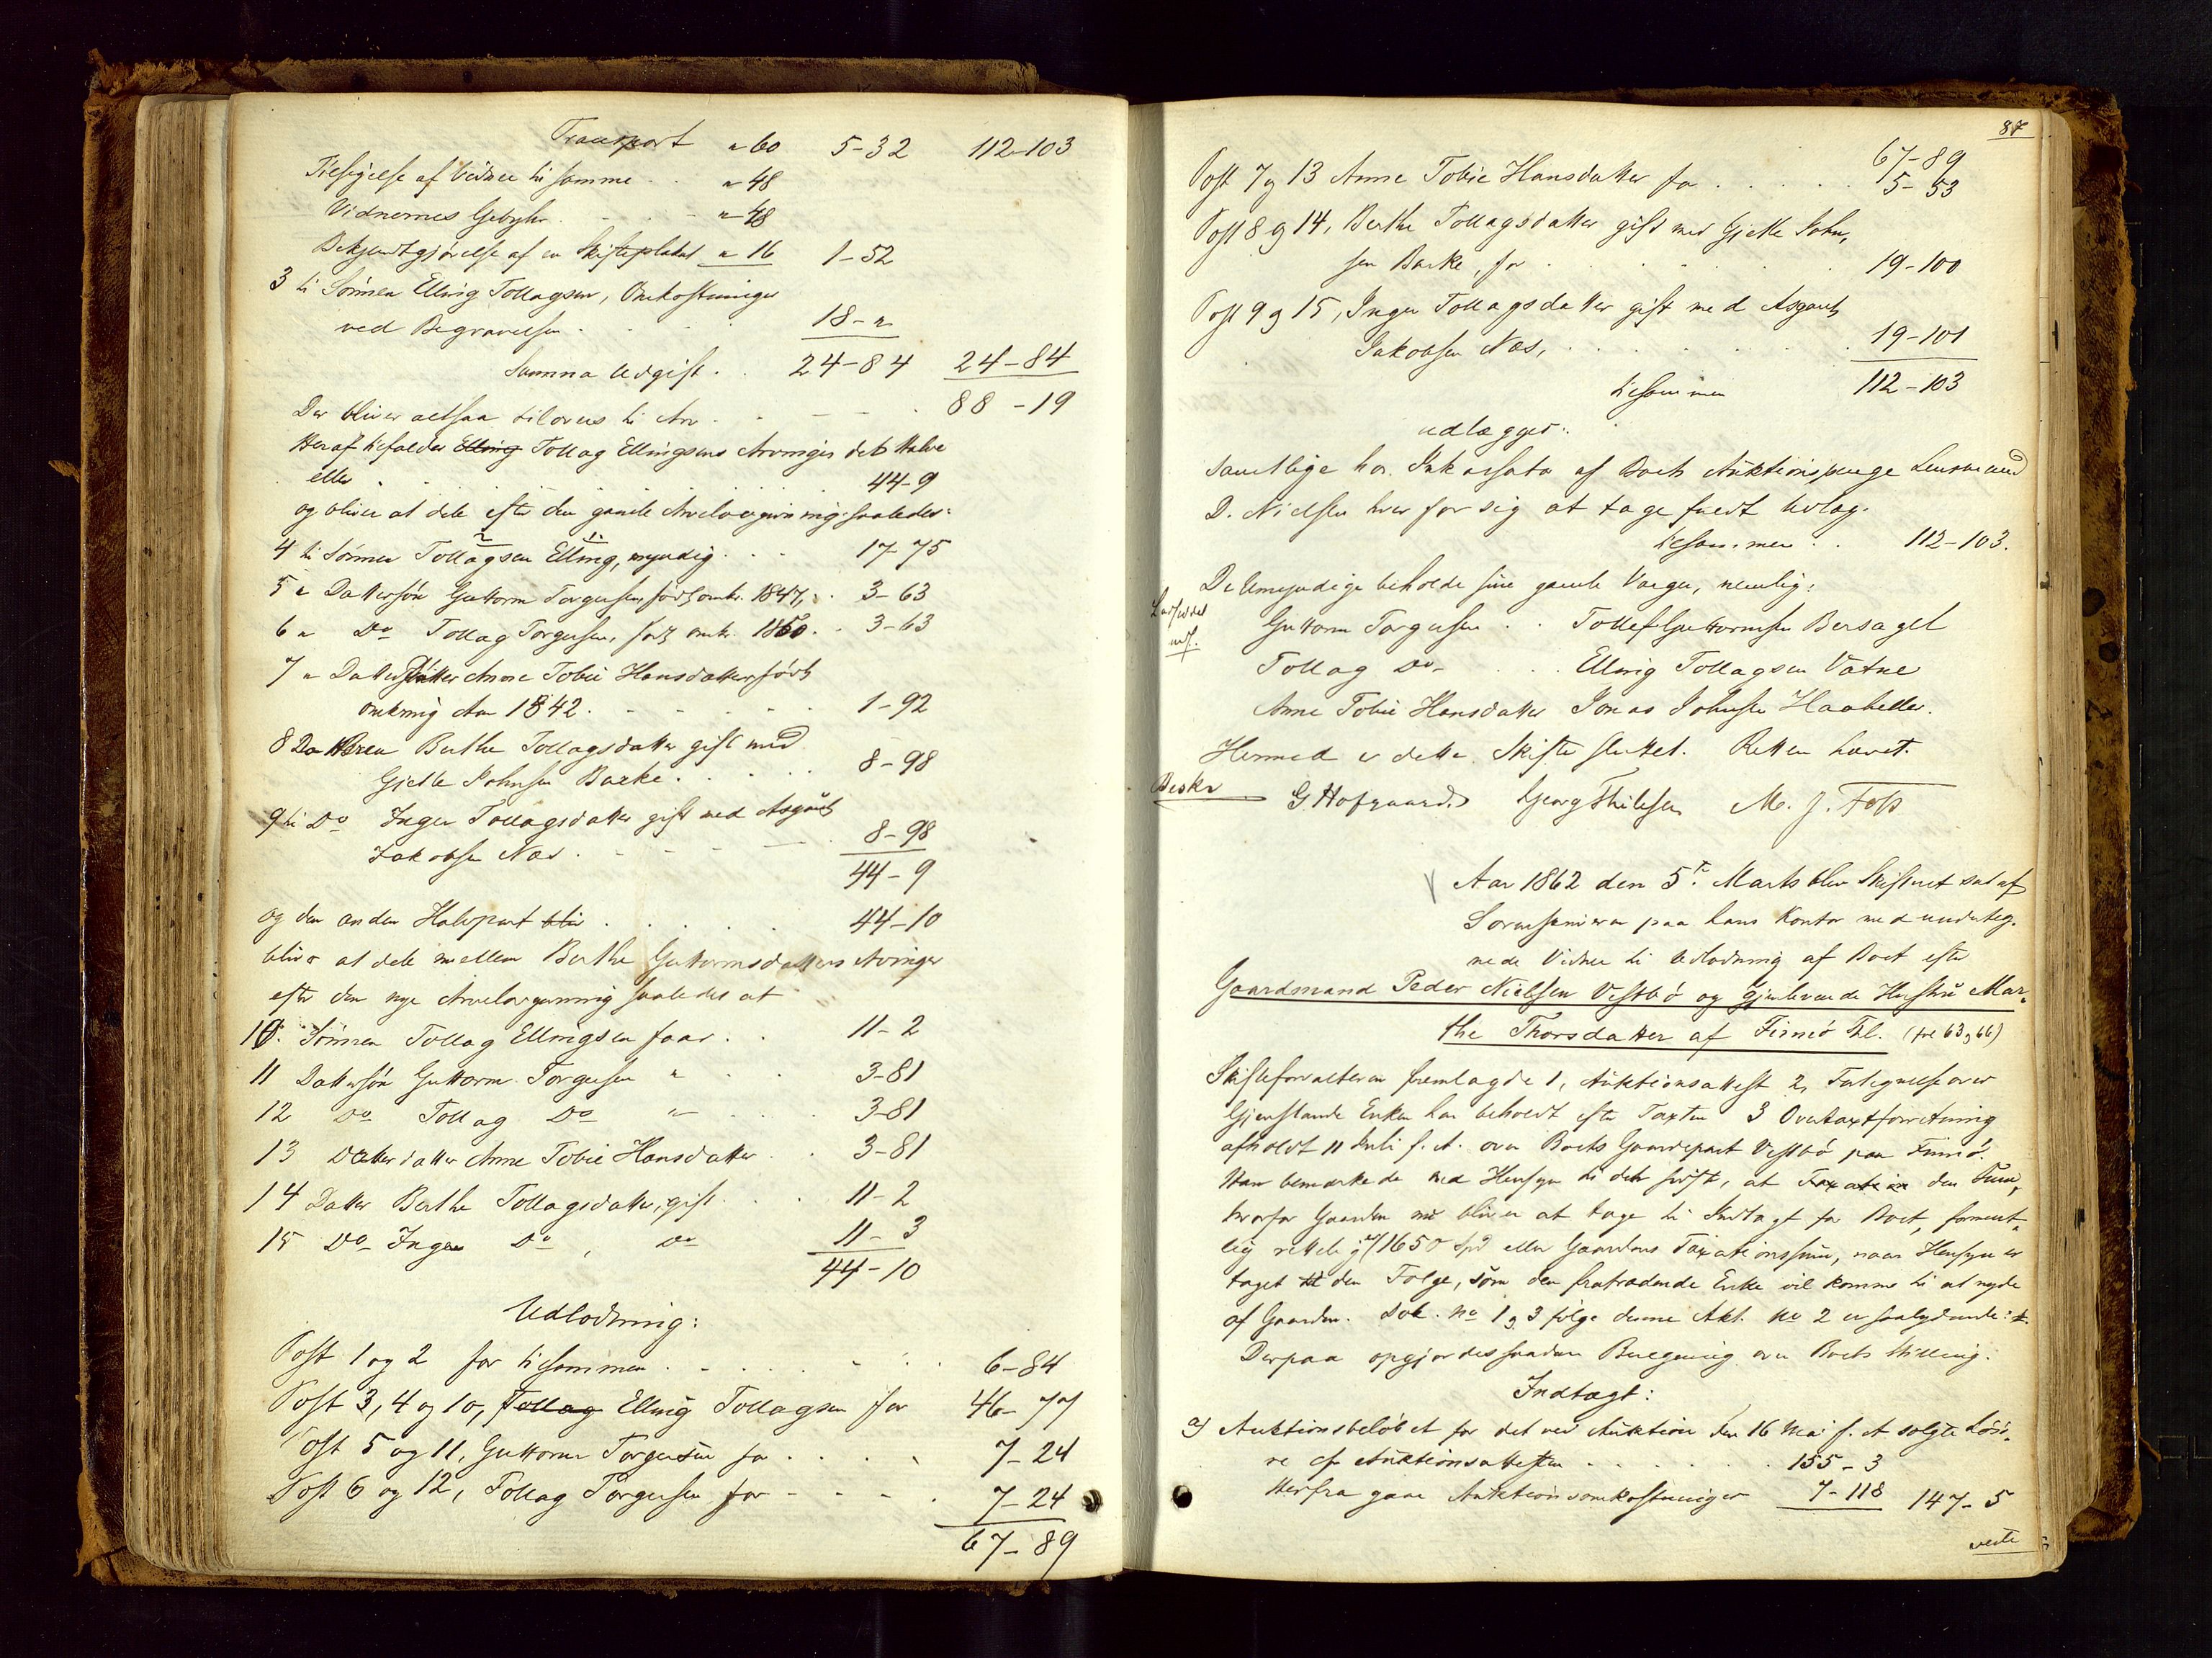 Transport " 60 5-32 112-103
Tilsigelse af Vidner til samme . . " 48
Vidnernes Gebyhr . . . " 48
Bekjendtgjørelse af en Skifteplakat " 16 1-52
3 til Sønnen Elling Tollagsen, Omkostninger
ved Begravelsen . . . 18- "
Summa Udgift . . 24-84 24-84
Der bliver altsaa tilovers til Arv . . . . 88-19
Heraf tilfalder Elling Tollag Ellingsens Arvinger det halve
eller . . . . . . . 44-9
og bliver at dele efter den gamle Arvelovgivning saaledes:
4 til Sønnen Tollagsen Elling, myndig . . . 17-75
5 " Dattersøn Guttorm Torgersen, født omkr. 1847, . . 3-63
6 " Do Tollag Torgersen, født omkr. 1850 . . 3-63
7 " Datterdatter Anne Tobie Hansdatter født
omkring Aar 1842 . . . . . . 1-92
8 Datteren Berthe Tollagsdatter gift med
Gjelle Johnsen Barke . . . . . 8-98
9 til Do Inger Tollagsdatter gift med Asgaut
Jakobsen Næs . . . . . 8-98
44-9
og den anden Halvpart bliv . . . . . 44-10
bliver at dele mellem Berthe Guttormsdatters Arvinger
efter den nye Arvelovgivning saaledes at
10. Sønnen Tollag Ellingsen faar . . 11-2
11 Dattersøn Guttorm Torgersen " . . 3-81
12 Do Tollag Do " . . . 3-81
13 Datterdatter Anne Tobie Hansdatter . . 3-81
14 Datter Berthe Tollagsdatter, gift . . . 11-2
15 Do Inger Do , Do 11-3
44-10
Udlodning:
Post 1 og 2 for tilsammen . . . . . . . 6-84
Post 3, 4 og 10, Tollag Elling Tollagsen for 46-77
Post 5 og 11, Guttorm Torgersen for . . . . 7-24
Post 6 og 12, Tollag Torgersen for - - - . 7-24
67-89
87
67-89
Post 7 og 13 Anne Tobie Hansdatter for . . . . . 5-53
Post 8 og 14, Berthe Tollagsdatter gift med Gjelle John,
sen Barke, for . . . . . . 19-100
Post 9 og 15, Inger Tollagsdatter gift med Asgaut
Jakobsen Næs, . . . . . . . 19-101
tilsammen 112-103
udlægges:
samtlige hos Inkassator af Boets Auktionspenge Lensmand
D. Nielsen hver for sig at tage fuldt Udlæg.
tilsammen . . 112-103.
De Umyndige beholde sine gamle Værger, nemlig:
Guttorm Torgersen . . Tollef Guttormsen Bersagel
Tollag Do . . Elling Tollagsen Vatne
Anne Tobie Hansdatter Jonas Johnsen Haaheller.
Hermed er dette Skifte sluttet. Retten hævet.
Beskr G Hofgaard Georg Thilesen M. J. Foss
Aar 1862 den 5te Marts blev Skifteret sat af
Sorenskriveren paa hans Kontor med underteg-
nede Vidner til Udlodning af Boet efter
Gaardmand Peder Nielsen Vestbø og gjenlevende Hustru Mar-
the Thorsdatter af Finnø Thl. (fol 63 og 66)
Skifteforvalteren fremlagde 1, Auktionsattest 2, Fortegnelse over
Gjenstande Enken har beholdt efter Taxten 3 Overtaxtforretning
afholdt 11 Juli f. A. over Boets Gaardepart Vestbø paa Finnø.
Han bemærkede med Hensyn til det sidste, at Taxation den Sum,
hvorfor Gaarden nu bliver at tage til Indtægt for Boet, forment-
lig rettelig er 1650 Spd eller Gaardens Taxationssum, naar Hensyn er
taget til den Følge, som den fratrædende Enke vil komme til at nyde
af Gaarden. Dok. No 1 og 3 følge denne Akt. No 2 er saalydende:
Derpaa opgjordes saadan Beregning over Boets Stilling:
Indtægt:
a) Auktionsbeløbet for det ved Auktion den 16 Mai f. A solgte Løsø-
re cf Auktionsattesten . . . . . . 155-3
Herfra gaar Auktionsomkostninger 7-118 147-5